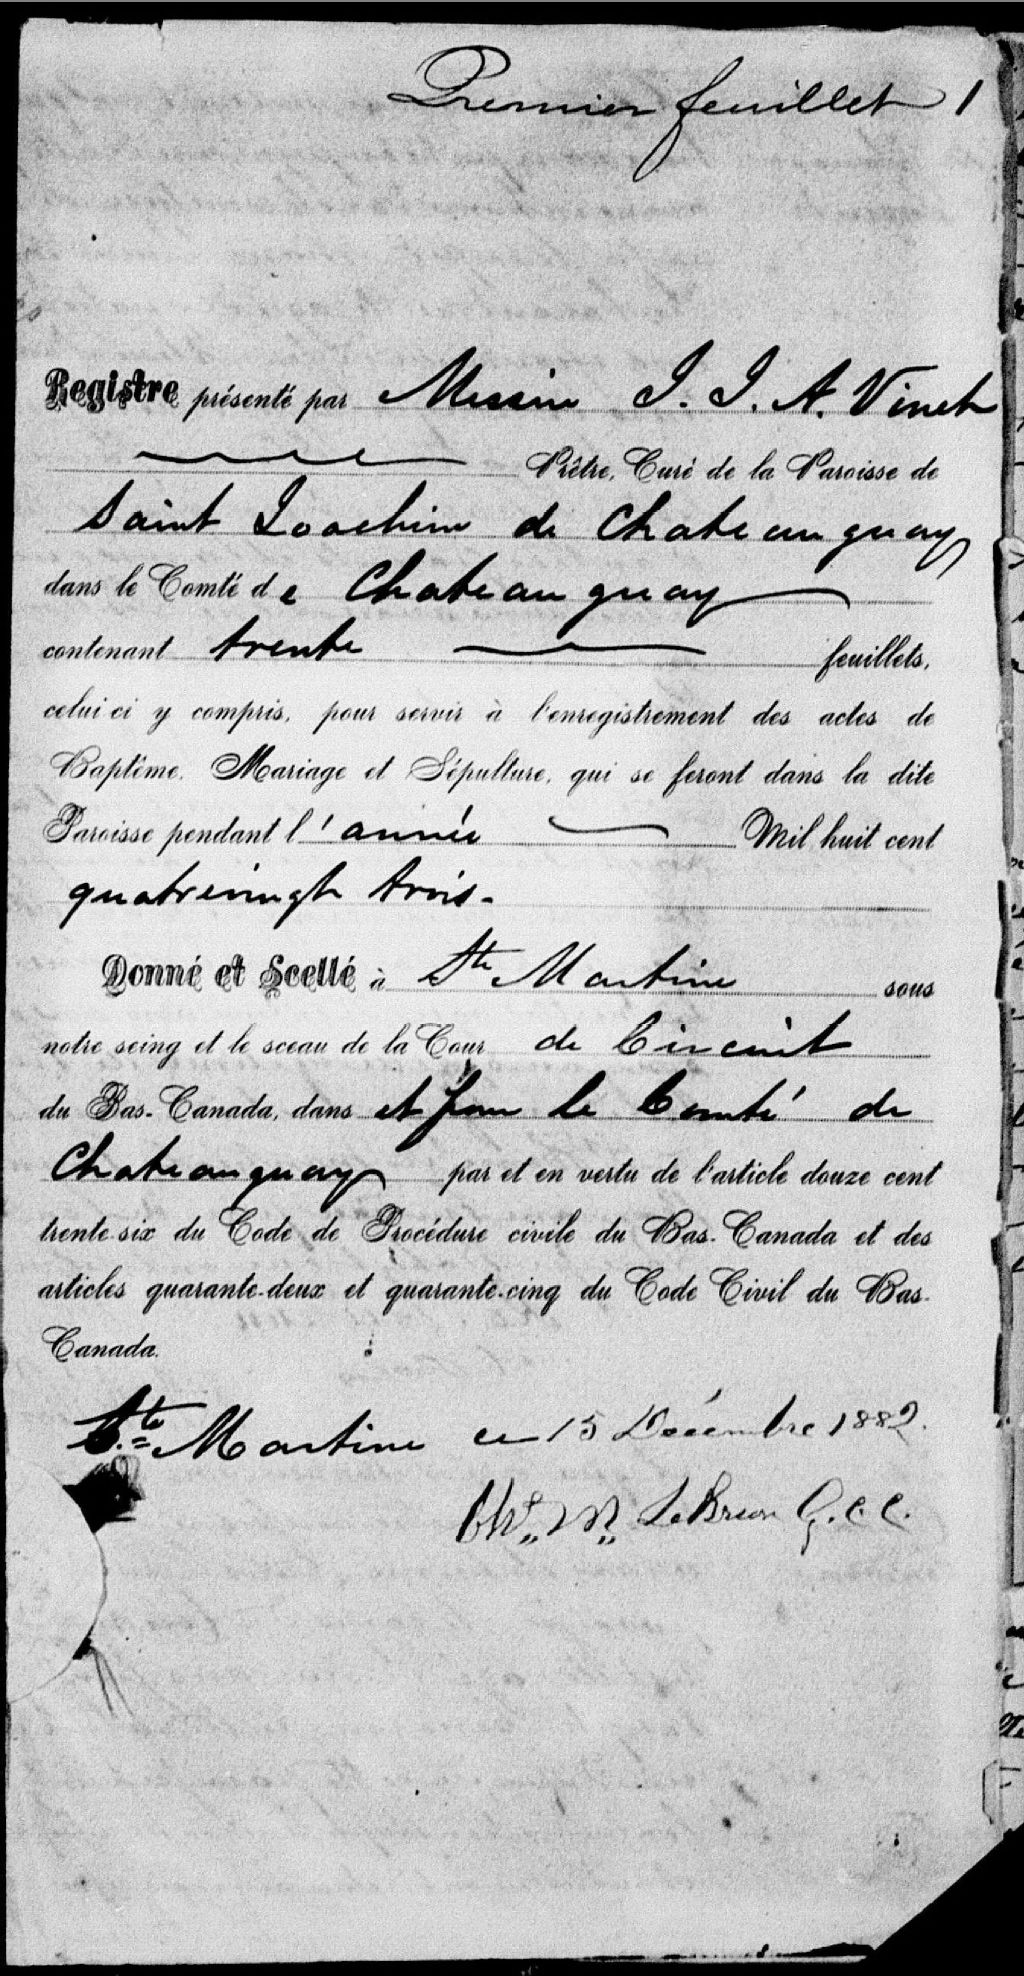 Premier feuillet 1
Registre présenté par Messire J. J. A. Vinet
Prêtre, Curé de la Paroisse de
Saint Joachim de Chateauguay
dans le Comté de Chateauguay
contenant trente feuillets,
celui-ci y compris, pour servir à l'enregistrement des actes de
Baptême, Mariage et Sépulture, qui se feront dans la dite
Paroisse pendant l'année Mil huit cent
quatrevingt trois.
Donné et Scellé à Ste Martine sous
notre seing et le sceau de la Cour de Circuit
du Bas-Canada, dans et pour le Comté de
Chateauguay par et en vertu de l'article douze cent
trente-six du Code de Procédure civile du Bas-Canada et des
articles quarante-deux et quarante-cinq du Code Civil du Bas-
Canada.
Ste Martine ce 15 Décembre 1882.
M. LeBrun G.C.C.